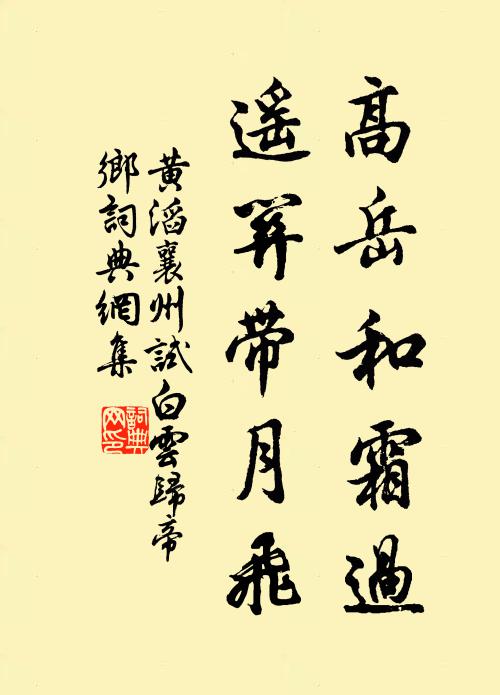 高岳和霜過
遥關帶月飛
黃滔襄州試白雲歸帝
鄉詞典網集
詞典
网印